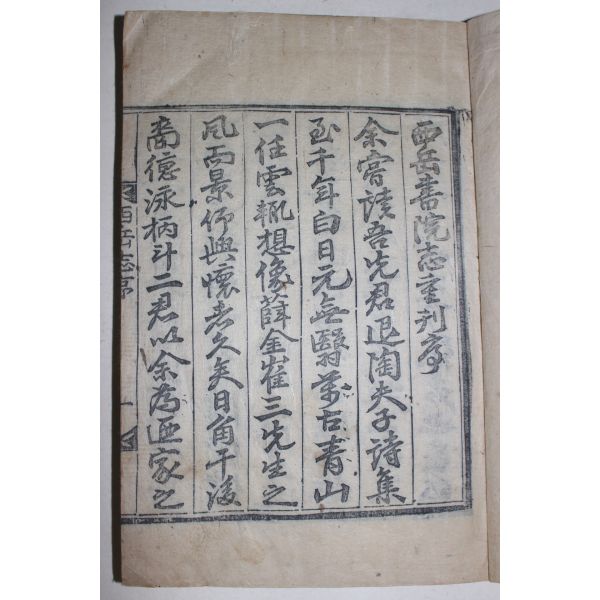 西岳書院志重刊序
余嘗讀吾先君退陶夫子詩集
至千年白日元無翳萬古青山
一任雲輒想像薛金崔三先生之
風而景仰興懷者久矣日角干後
裔德泳柄斗二君以余為匪家之
西岳志序
一